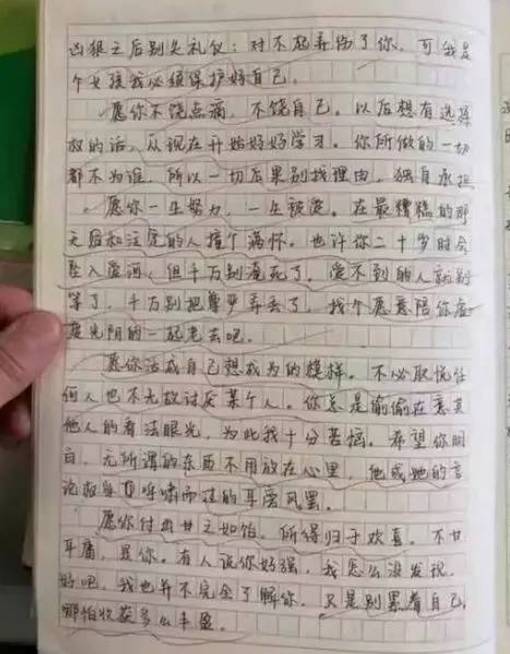 凶狠之后别失礼仪：对不起弄伤了你，可我是
个女孩我必须保护好自己。
愿你不饶点滴，不饶自己。以后想有选择
权的话，从现在开始好好学习。你所做的一切
都不为谁，所以一切后果别找理由，独自承担
。愿你一生努力，一生被爱。在最糟糕的那
天晤和注定的人撞个满怀。也许你二十岁时会
坠入爱河，但千万别淹死了。爱不到的人就别
等了，千万别把尊严弄丢了，找个愿意陪你虚
度光阴的一起老去吧。
愿你活成自己想成为的模样。不必取悦任
何人也不无故讨厌某个人。你总是偷偷在意其
他人的看法眼光，为此我十分苦恼。希望你明
白，无所谓的东西不用放在心里，他或她的言
论权当耳呼啸而过的耳旁风罢。
愿你付出甘之如饴，所得归于欢喜。不甘
平庸，是你。有人说你好强，我怎么没发现，
好吧，我也并不完全了解你。只是别累着自己，
哪怕收获多么丰盈。